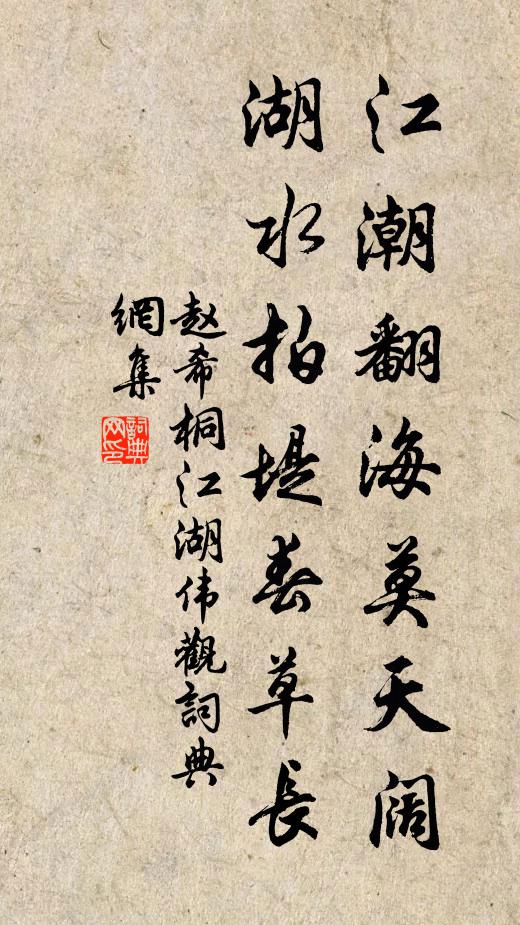 江潮翻海莫天阔
湖水拍堤春草長
赵希桐江湖伟觀詞典
網集
詞典
网印